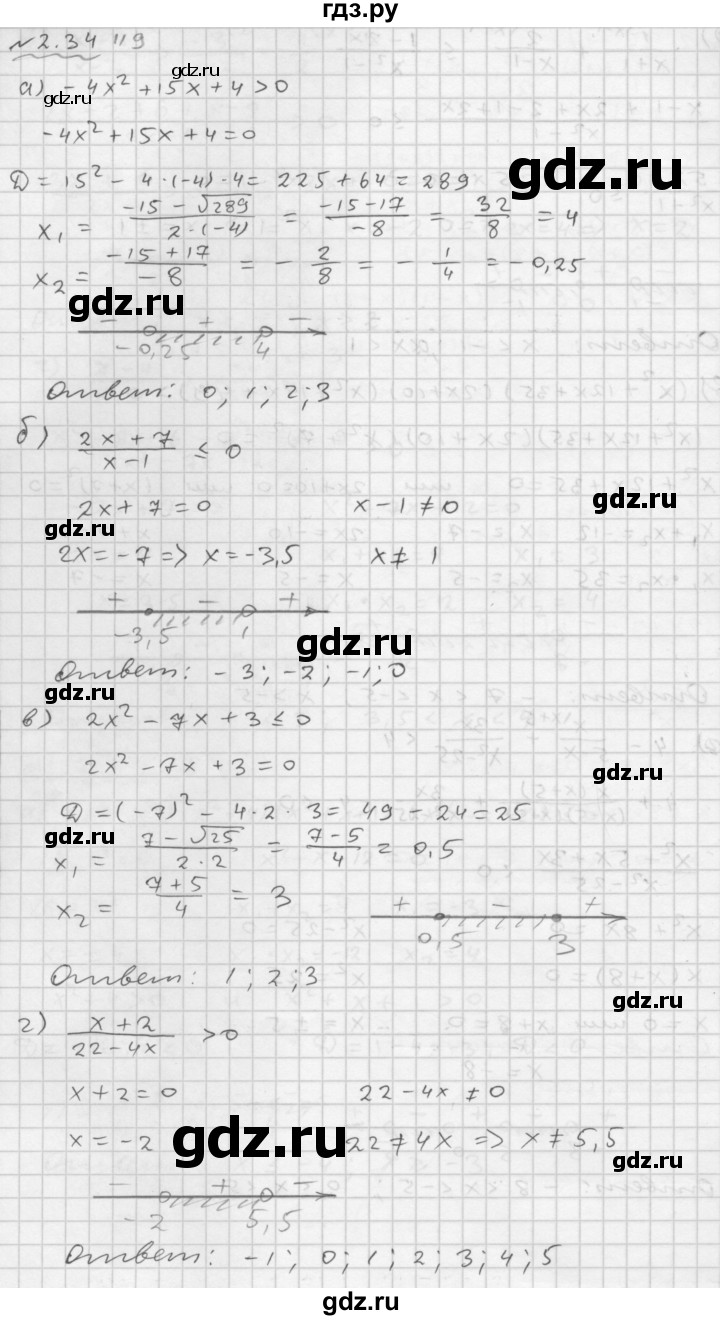 гдз.ру
№2.34 119
gdz.ru
а) -4x² + 15x + 4 > 0
gdz.ru
-4x² + 15x + 4 = 0
gdz.ru
D = 15² - 4·(-4)·4 = 225 + 64 = 289
x₁ = (-15 - √289)/(2·(-4)) = (-15 - 17)/(-8) = 32/8 = 4
x₂ = (-15 + 17)/(-8) = -2/8 = -1/4 = -0,25
gdz.ru
gdz.ru
- + -
-0,25 4
Ответ: 0; 1; 2; 3
б) (2x + 7)/(x - 1) ≤ 0
gdz.ru
2x + 7 = 0 x - 1 ≠ 0
gdz.ru
2x = -7 => x = -3,5 x ≠ 1
+ - +
-3,5 1
gdz.ru
Ответ: -3; -2; -1; 0
gdz.ru
в) 2x² - 7x + 3 ≤ 0
2x² - 7x + 3 = 0
gdz.ru
D = (-7)² - 4·2·3 = 49 - 24 = 25
gdz.ru
x₁ = (7 - √25)/(2·2) = (7 - 5)/4 = 0,5
x₂ = (7 + 5)/4 = 3
+ - +
0,5 3
Ответ: 1; 2; 3
gdz.ru
г) (x + 2)/(22 - 4x) > 0
x + 2 = 0 22 - 4x ≠ 0
x = -2 22 ≠ 4x => x ≠ 5,5
gdz.ru
gdz.ru
- + -
-2 5,5
Ответ: -1; 0; 1; 2; 3; 4; 5
gdz.ru